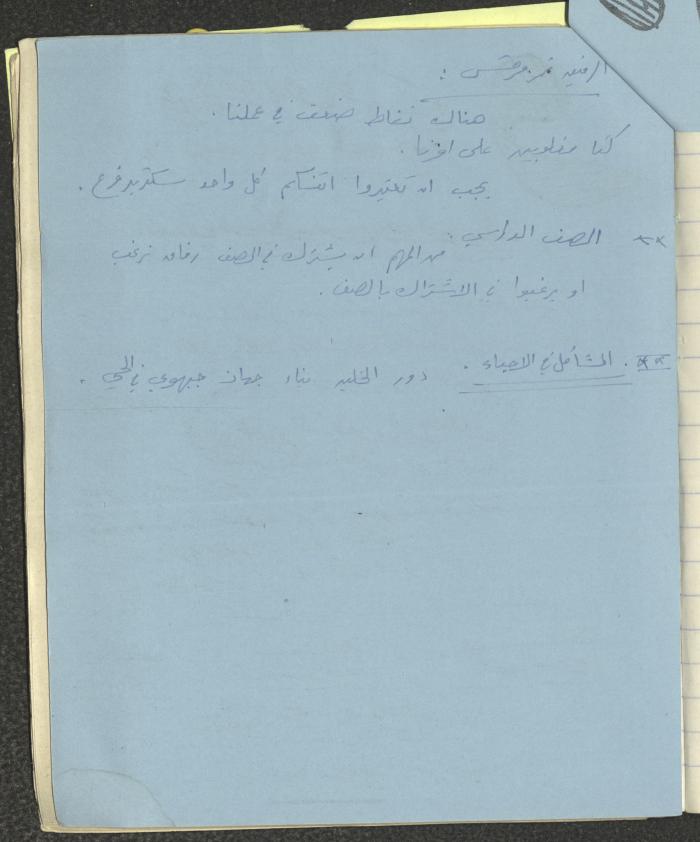 الرفيق نمر مرقس :
هناك نقاط ضعف في عملنا .
كنا مغلوبين على امرنا .
يجب ان تعتبروا انفسكم كل واحد سكرتير فرع .
** الصف الدراسي : من المهم ان يشترك في الصف رفاق نرغب
او يرغبوا في الاشتراك بالصف .
** . المشاكل في الاحياء . دور الخليه بناء جهاز جبهوي في الحي .